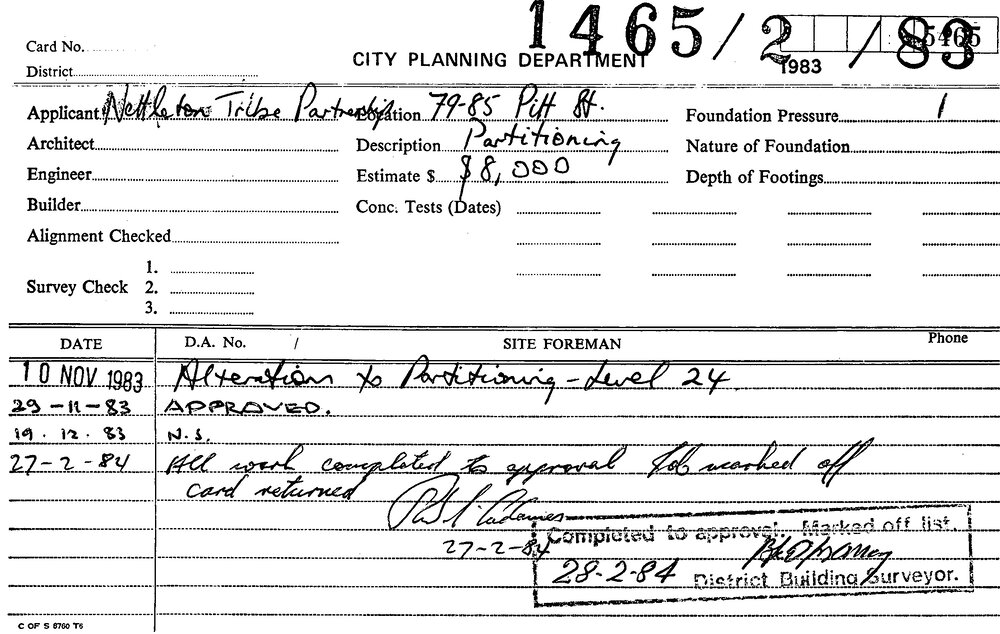 1465/2/83
5465
Card No.
CITY PLANNING DEPARTMENT
1983
District
Applicant Nettleton Tribe Partnership Location 79-85 Pitt St. Foundation Pressure 1
Architect Description Partitioning Nature of Foundation
Engineer Estimate $ $8,000 Depth of Footings
Builder Conc. Tests (Dates)
Alignment Checked
1.
Survey Check 2.
3.
DATE D.A. No. / SITE FOREMAN Phone
10 NOV 1983 Alterations to Partitioning - Level 24
29-11-83 APPROVED.
19.12.83 N.S.
27-2-84 All work completed to approval Job marked off
card returned
27-2-84
Completed to approval. Marked off list.
28-2-84 District Building Surveyor.
C OF S 8760 T6